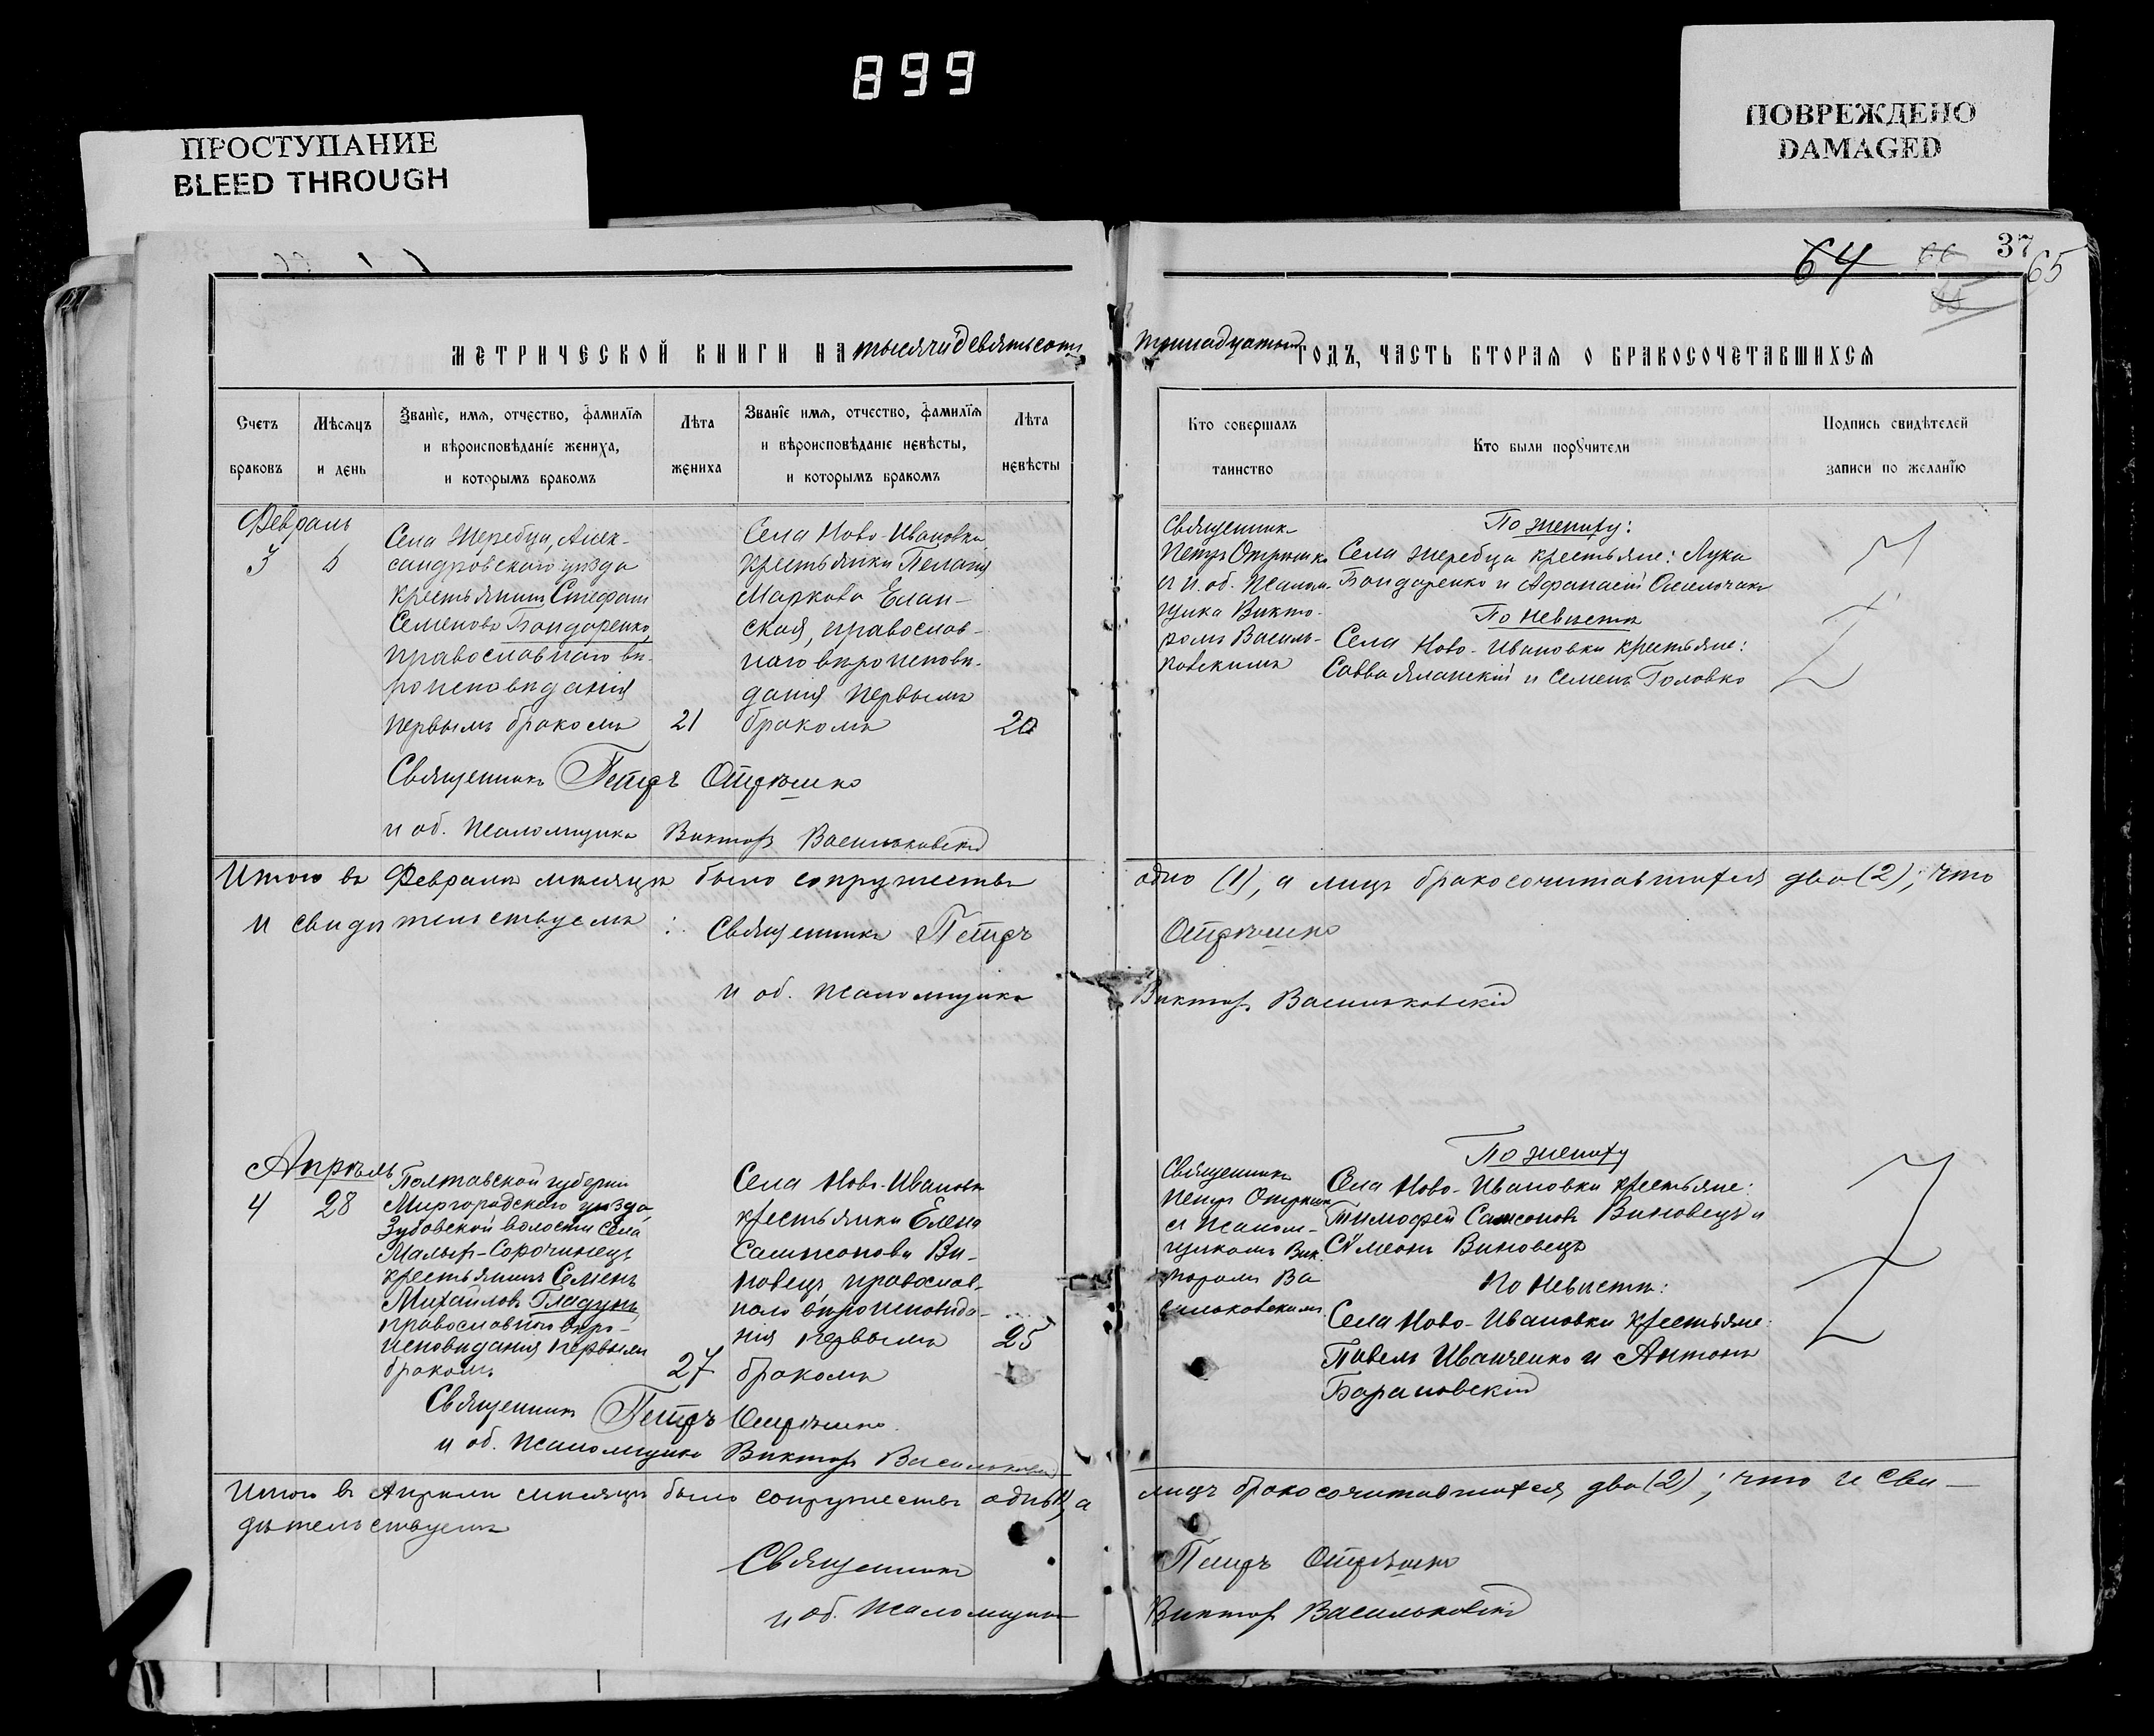 899
ПРОСТУПАНИЕ
BLEED THROUGH
ПОВРЕЖДЕНО
DAMAGED
37
64 66 65
МЕТРИЧЕСКОЙ КНИГИ НА тысяча девятьсотъ тринадцатый ГОДЪ, ЧАСТЬ ВТОРАЯ О БРАКОСОЧЕТАВШИХСЯ
Счетъ браковъ
Мѣсяцъ и день
Званіе, имя, отчество, фамилія
и вѣроисповѣданіе жениха,
и которымъ бракомъ
Лѣта жениха
Званіе имя, отчество, фамилія
и вѣроисповѣданіе невѣсты,
и которымъ бракомъ
Лѣта невѣсты
Кто совершалъ таинство
Кто были поручители
Подпись свидѣтелей
записи по желанію
Февраль
3
Села Жеребца, Алек-
сандровскаго уѣзда
крестьянинъ Стефанъ
Семеновъ Бондаренко,
православнаго вѣ-
роисповѣданія
первымъ бракомъ
21
Села Ново-Ивановки
крестьянка Пелагія
Маркова Елан-
ская, православ-
наго вѣроисповѣ-
данія первымъ
бракомъ
20
Священникъ
Петръ Отрѣшко
и и. об. псалом-
щика Викто-
ромъ Василь-
ковскимъ
По жениху:
Села Жеребца крестьяне: Лука
Бондаренко и Афанасій
По невѣстѣ
Села Ново-Ивановки крестьяне:
Савва Яланскій и Семенъ Головко
Священникъ Петръ Отрѣшко
и об. псаломщика Викторъ Васильковскій
Итого въ Февралѣ мѣсяцѣ было супружествъ одно (1), а лицъ бракосочитавшихся два (2); что
и свидѣтельствуемъ: Священникъ Петръ Отрѣшко
и об. псаломщика Викторъ Васильковскій
Апрѣль
4
28
Полтавской губерніи
Миргородскаго уѣзда,
Зубовской волости села
Малыхъ-Сорочинецъ
крестьянинъ Семенъ
Михайловъ Гладунъ,
православнаго вѣро-
исповѣданія первымъ
бракомъ
27
Села Ново-Ивановки
крестьянка Елена
Сампсонова Ви-
новецъ, православ-
наго вѣроисповѣда-
нія первымъ
бракомъ
25
Священникъ
Петръ Отрѣшко
и псалом-
щикомъ Вик-
торомъ Ва
сильковскимъ
По жениху
Села Ново-Ивановки крестьяне:
Тимофей Самсоновъ Виновецъ и
Симеонъ Виновецъ
По невѣстѣ:
Села Ново-Ивановки крестьяне:
Павелъ Иванченко и Антонъ
Барановскій
Священникъ Петръ Отрѣшко
и об. псаломщика Викторъ Васильковскій
Итого въ Апрѣлѣ мѣсяцѣ было супружествъ одно (1), а лицъ бракосочитавшихся два (2); что и сви-
дѣтельствуемъ
Священникъ Петръ Отрѣшко
и об. псаломщика Викторъ Васильковскій